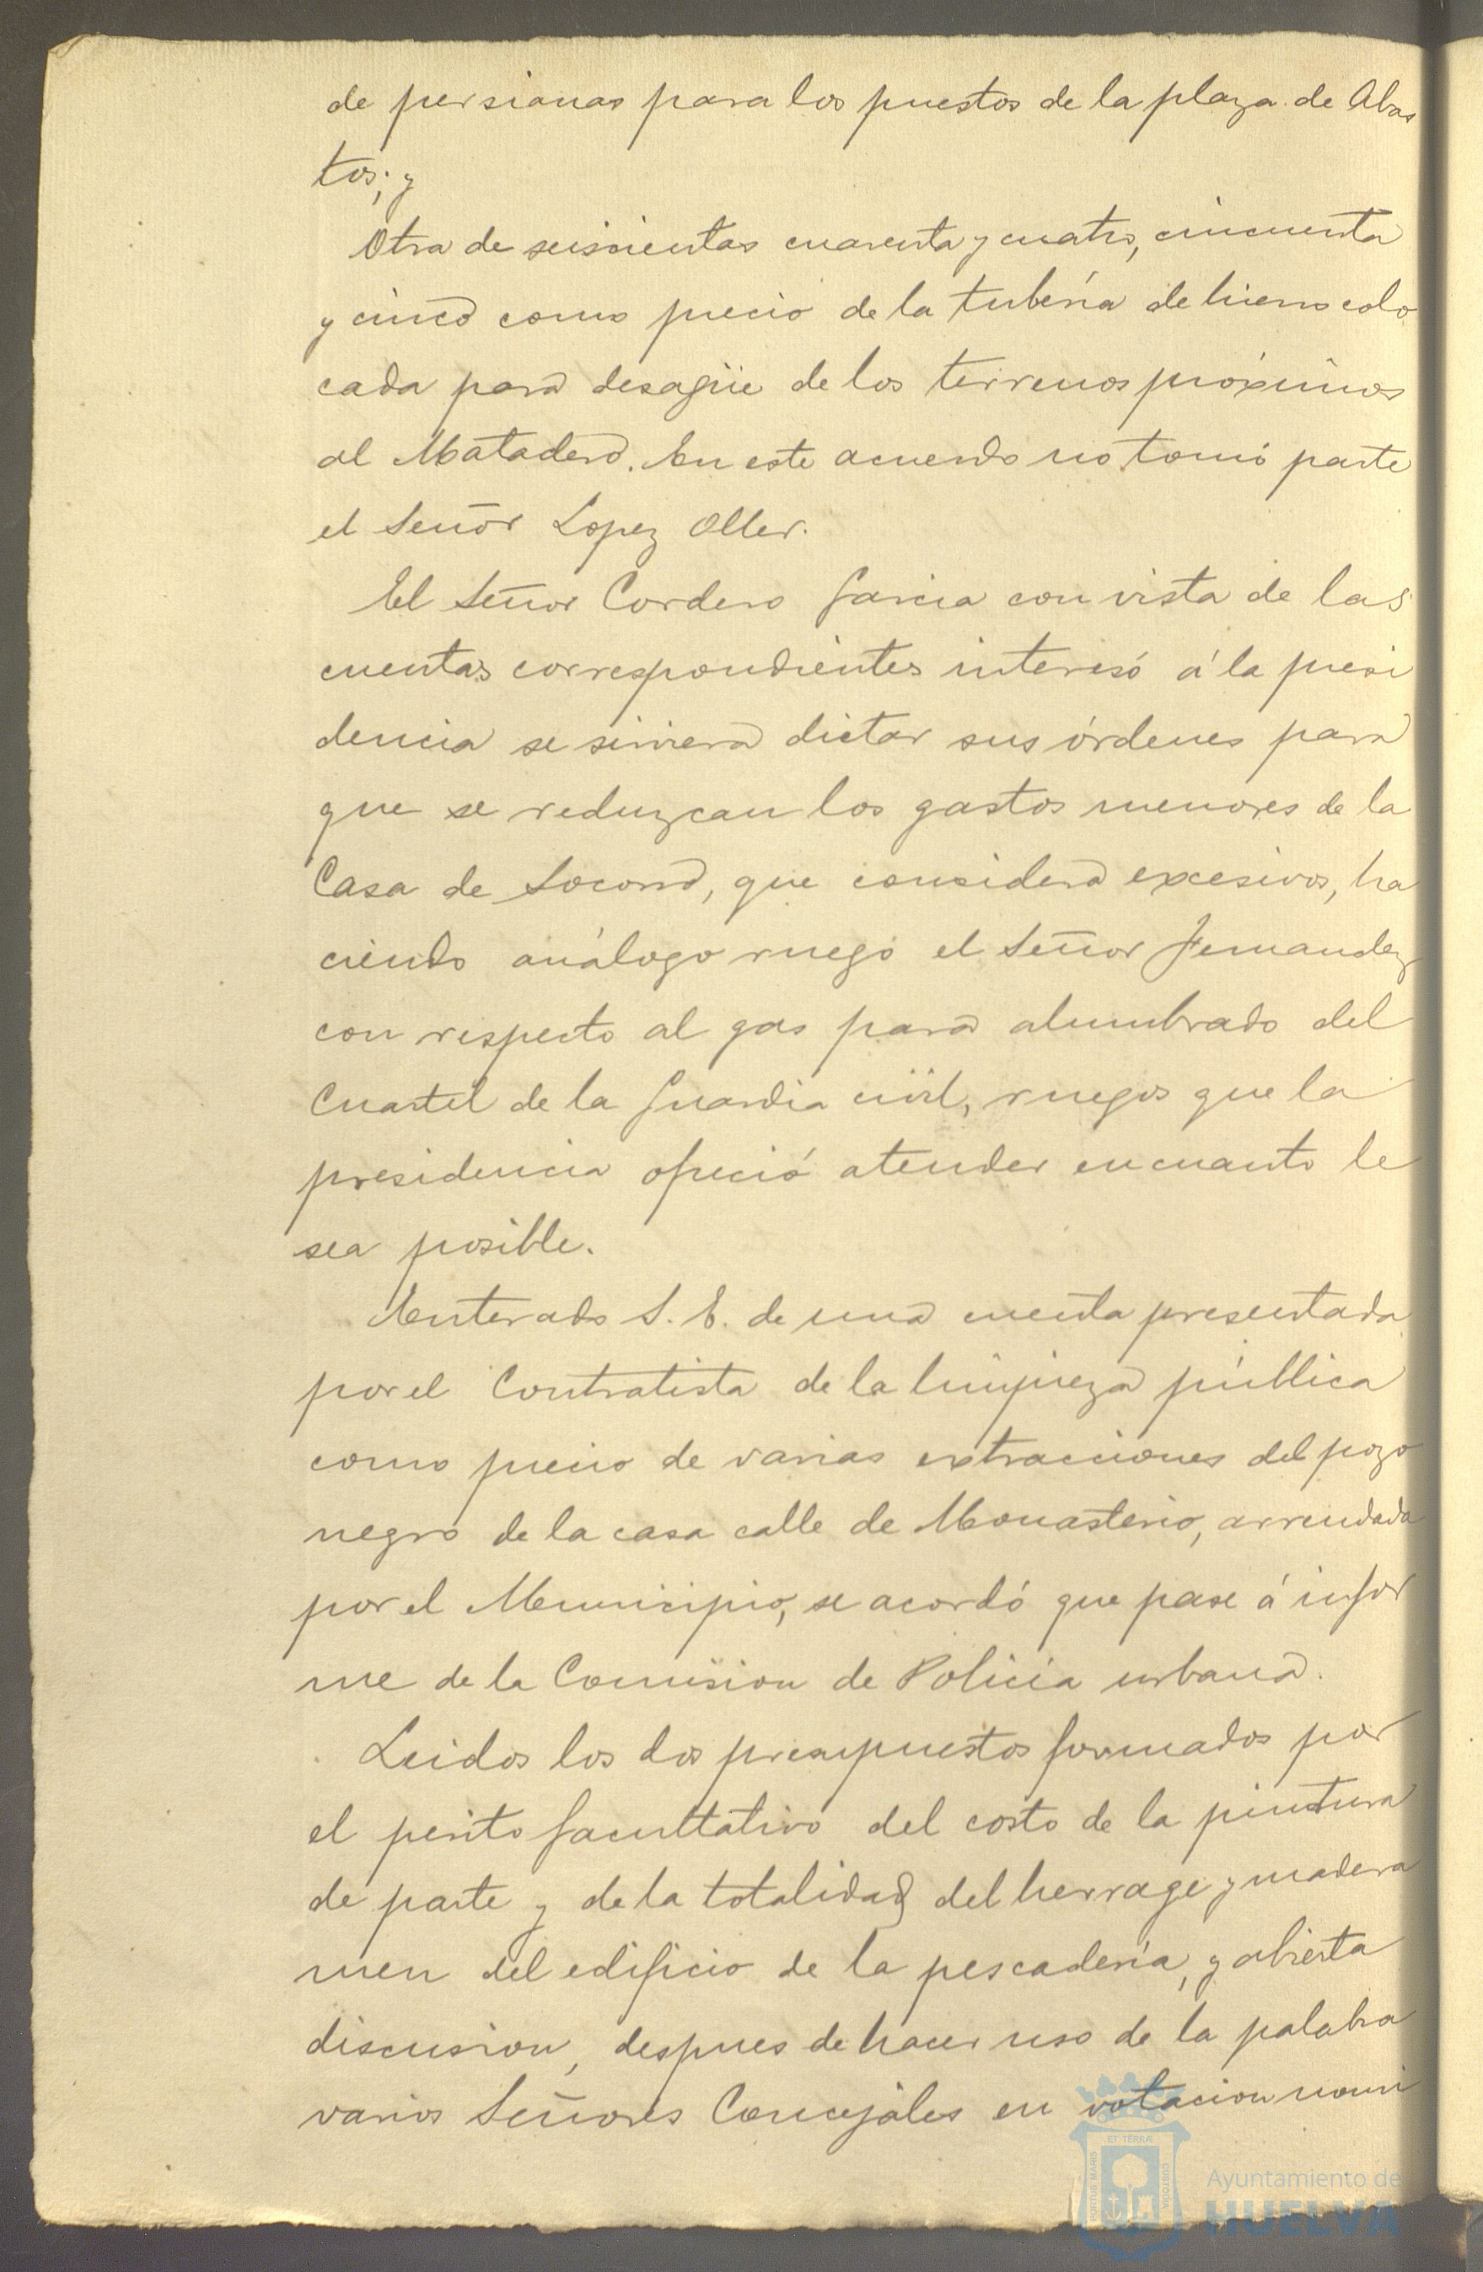 de persianas para los puestos de la plaza de Abas
tos; y
Otra de seiscientas cuarenta y cuatro, cincuenta
y cinco como precio de la tubería de hierro colo
cada para desagüe de los terrenos próximos
al Matadero. En este acuerdo no tomó parte
el Señor Lopez Oller.
El Señor Cordero Garcia con vista de las
cuentas correspondientes interesó á la presi
dencia se sirviera dictar sus órdenes para
que se reduzcan los gastos menores de la
Casa de Socorro, que considera excesivos, ha
ciendo análogo ruego el Señor Fernandez
con respecto al gas para alumbrado del
Cuartel de la Guardia civil, ruegos que la
presidencia ofreció atender en cuanto le
sea posible.
Enterado S. E. de una cuenta presentada
por el Contratista de la limpieza pública
como precio de varias extracciones del pozo
negro de la casa calle de Monasterio, arrendada
por el Municipio, se acordó que pase á infor
me de la Comision de Policia urbana.
Leidos los dos presupuestos formados por
el perito facultativo del costo de la pintura
de parte y de la totalidad del herrage y madera
men del edificio de la pescadería, y abierta
discusion, despues de hacer uso de la palabra
varios Señores Concejales en votacion nomi
PORTUS MARIS
ET TERRÆ
CUSTODIA
Ayuntamiento de
HUELVA